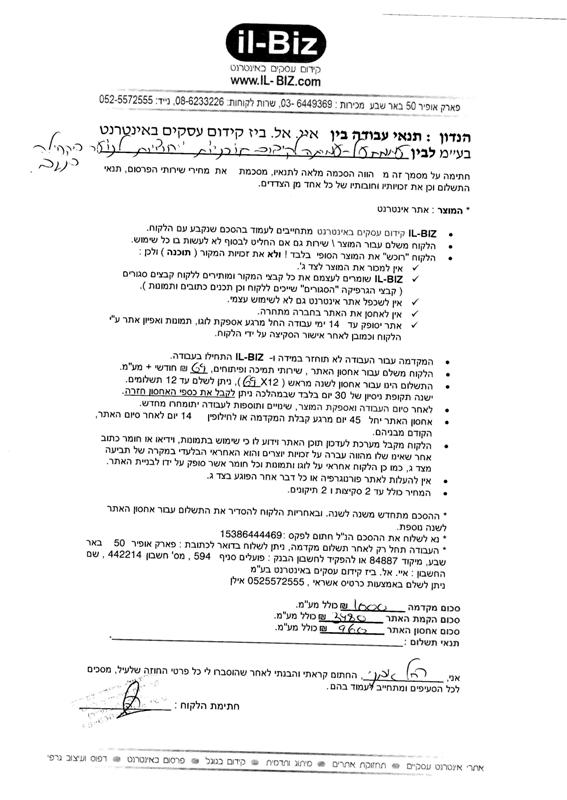 il-Biz
קידום עסקים באינטרנט
www.IL-BIZ.com
פארק אופיר 50 באר שבע מכירות : 6449369 -03, שרות לקוחות: 08-6233226, נייד: 052-5572555
הנדון : תנאי עבודה בין אינ. אל. ביז קידום עסקים באינטרנט
בע״מ לבין
חתימה על מסמך זה מ הווה הסכמה מלאה לתנאיו, מסכמת את מחירי שירותי הפרסום, תנאי
התשלום וכן את זכויותיו וחובותיו של כל אחד מן הצדדים.
* המוצר : אתר אינטרנט
• IL-BIZ קידום עסקים באינטרנט מתחייבים לעמוד בהסכם שנקבע עם הלקוח.
• הלקוח משלם עבור המוצר \ שירות גם אם החליט לבסוף לא לעשות בו כל שימוש.
• הלקוח "רוכש" את המוצר הסופי בלבד ! ולא את זכויות המקור ( תוכנה ) ולכן :
✓ אין למכור את המוצר לצד ג'.
✓ IL-BIZ שומרים לעצמם את כל קבצי המקור ומותירים ללקוח קבצים סגורים
( קבצי הגרפיקה "הסגורים" שייכים ללקוח וכן תכנים כתובים ותמונות ).
✓ אין לשכפל אתר אינטרנט גם לא לשימוש עצמי.
✓ אין לאחסן את האתר בחברה מתחרה.
✓ אתר יסופק עד 14 ימי עבודה החל מרגע אספקת לוגו, תמונות ואפיון אתר ע״י
הלקוח וכמובן לאחר אישור הסקיצה על ידי הלקוח.
• המקדמה עבור העבודה לא תוחזר במידה ו- IL-BIZ התחילו בעבודה.
• הלקוח משלם עבור אחסון האתר , שירותי תמיכה ופיתוחים, 69 ₪ חודשי + מע״מ.
• התשלום הינו עבור אחסון לשנה מראש ( 69 X12 ), ניתן לשלם עד 12 תשלומים.
ישנה תקופת ניסיון של 30 יום בלבד שבמהלכה ניתן לקבל את כספי האחסון חזרה.
• לאחר סיום העבודה ואספקת המוצר, שינויים ותוספות לעבודה יתומחרו מחדש.
• אחסון האתר יחל 45 יום מרגע קבלת המקדמה או לחילופין 14 יום לאחר סיום האתר,
הקודם מבניהם.
• הלקוח מקבל מערכת לעדכון תוכן האתר וידוע לו כי שימוש בתמונות, וידיאו או חומר כתוב
אחר שאינו שלו מהווה עברה על זכויות יוצרים והוא האחראי הבלעדי במקרה של תביעה
מצד ג, כמו כן הלקוח אחראי על לוגו ותמונות וכל חומר אשר סופק על ידו לבניית האתר.
• אין להעלות לאתר פורנוגרפיה או כל דבר אחר הפוגע בצד ג.
• המחיר כולל עד 2 סקיצות ו 2 תיקונים.
* ההסכם מתחדש משנה לשנה. ובאחריות הלקוח להסדיר את התשלום עבור אחסון האתר
לשנה נוספת.
* נא לשלוח את ההסכם הנ״ל חתום לפקס : 15386444469
* העבודה תחל רק לאחר תשלום מקדמה, ניתן לשלוח בדואר לכתובת : פארק אופיר 50 באר
שבע, מיקוד 84887 או להפקיד לחשבון הבנק : פועלים סניף 594 , מס' חשבון 442214 , שם
החשבון : איי. אל. ביז קידום עסקים באינטרנט בע״מ
ניתן לשלם באמצעות כרטיס אשראי , 0525572555 אילן
סכום מקדמה 1000 ₪ כולל מע״מ.
סכום הקמת האתר 3480 ₪ כולל מע״מ.
סכום אחסון האתר 960 ₪ כולל מע״מ.
תנאי תשלום :
אני, החתום קראתי והבנתי לאחר שהוסברו לי כל פרטי החוזה שלעיל, מסכים
לכל הסעיפים ומתחייב לעמוד בהם.
חתימת הלקוח :
אתרי אינטרנט עסקיים תחזוקת אתרים מיתוג ותדמית קידום בגוגל פרסום באינטרנט דפוס ועיצוב גרפי